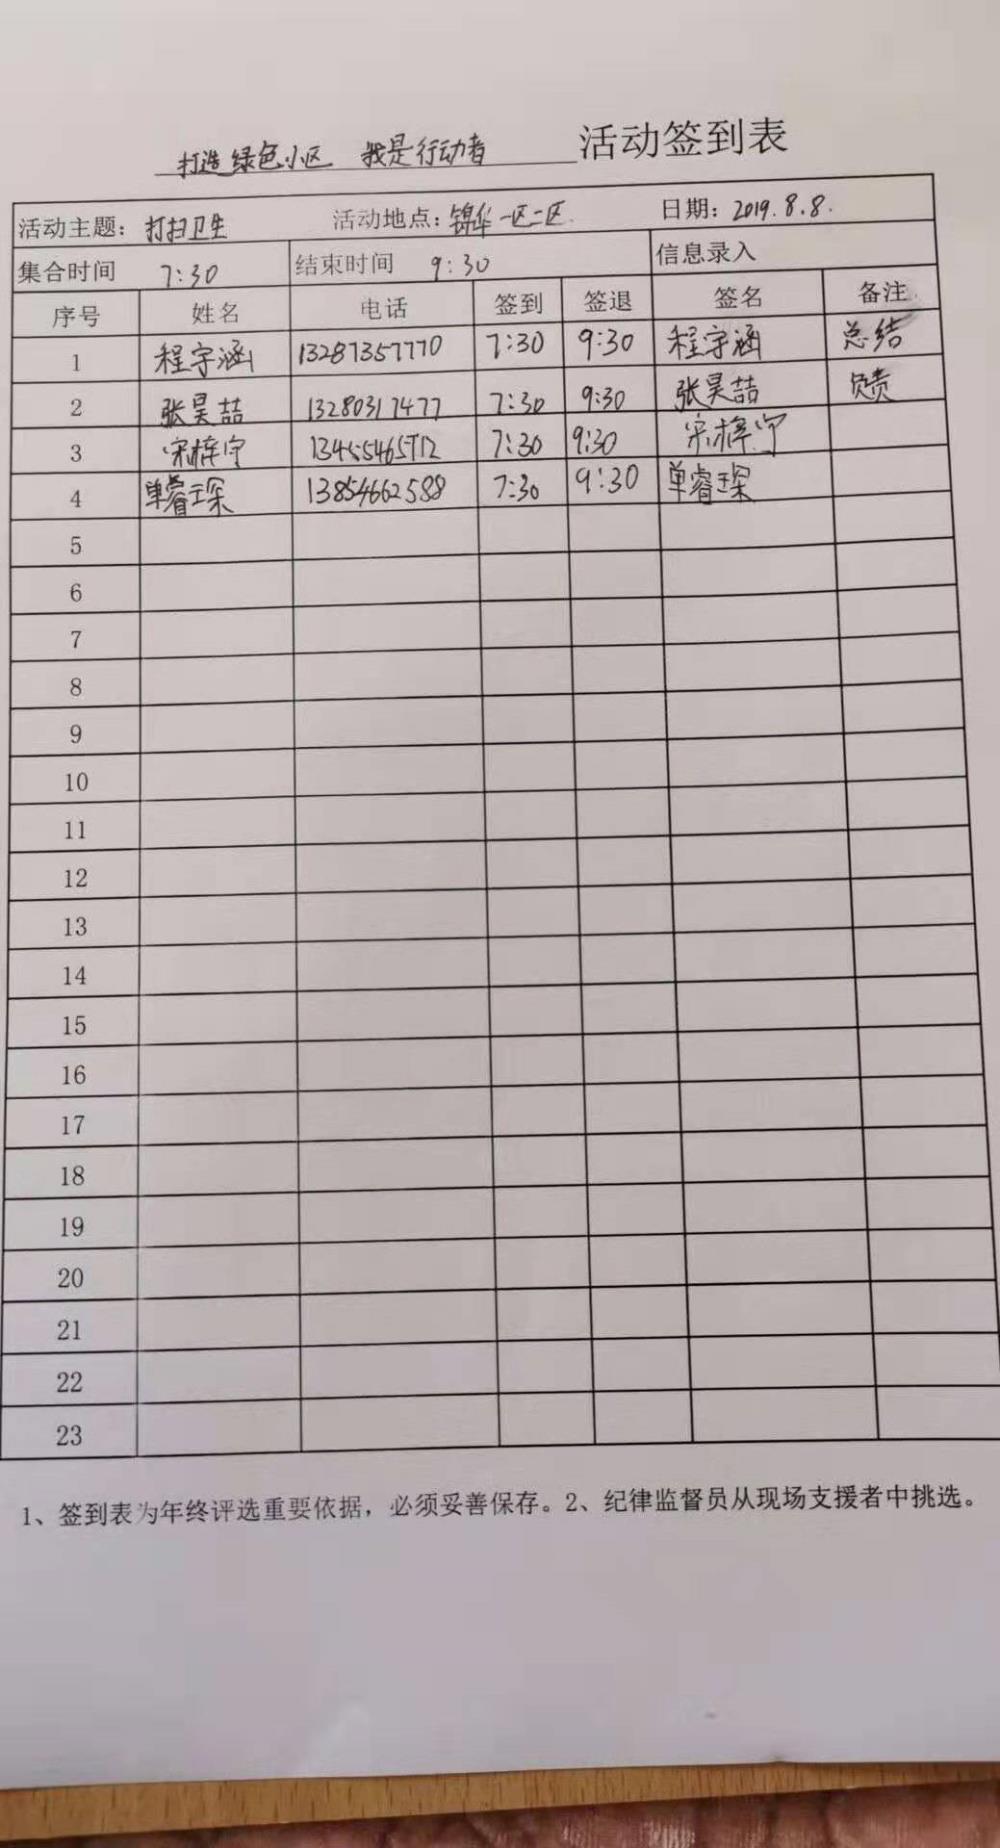 打造绿色小区 我是行动者 活动签到表
活动主题：打扫卫生 活动地点：锦华一区二区. 日期：2019.8.8.
集合时间 7:30 结束时间 9:30 信息录入
序号 姓名 电话 签到 签退 签名 备注
1 程宇涵 13287357770 7:30 9:30 程宇涵 总结
2 张昊喆 13280317477 7:30 9:30 张昊喆 负责
3 宋梓宁 7:30 9:30 宋梓宁
4 单睿琛 13854662588 7:30 9:30 单睿琛
5
6
7
8
9
10
11
12
13
14
15
16
17
18
19
20
21
22
23
1、签到表为年终评选重要依据，必须妥善保存。2、纪律监督员从现场支援者中挑选。